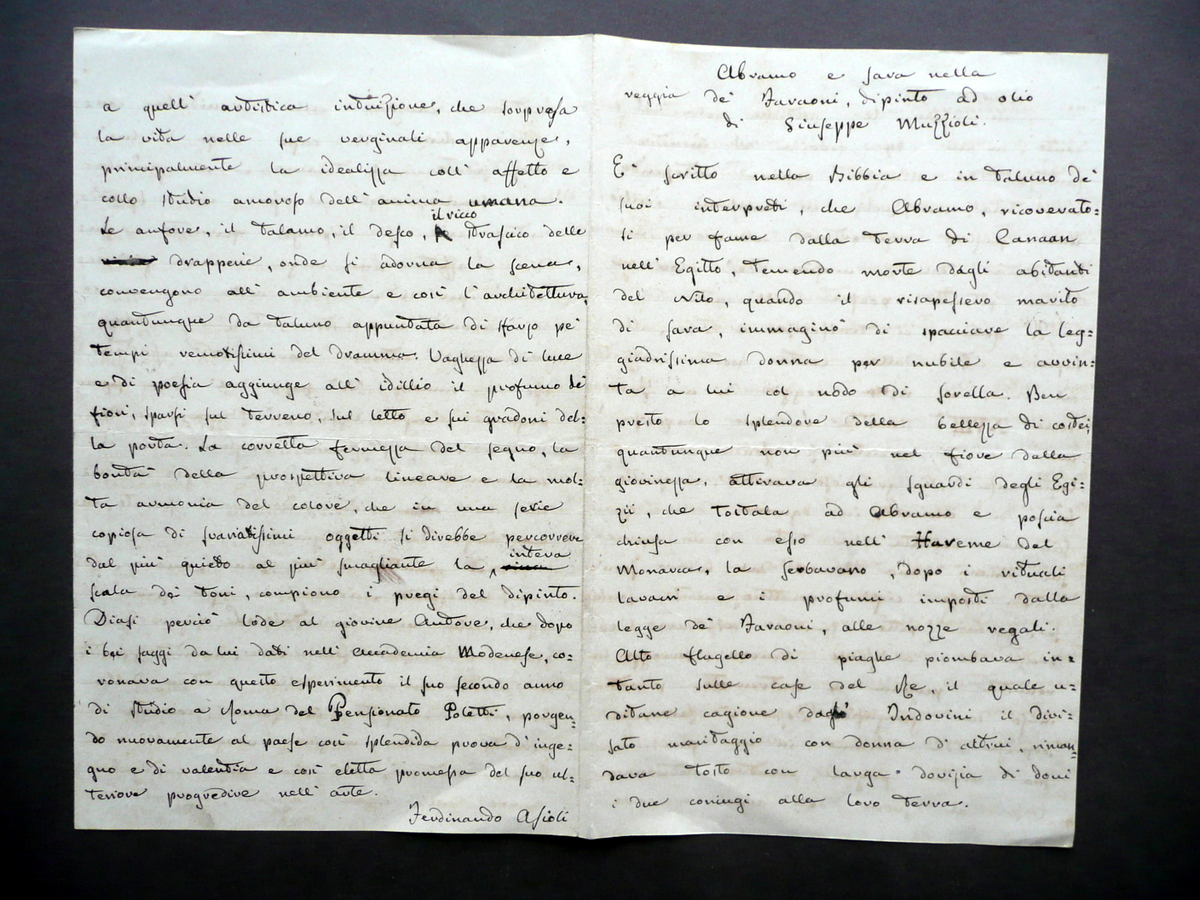 a quell' artistica intuizione, che sorpresa
la vita nelle sue verginali apparenze,
principalmente la idealizza coll' affetto e
collo studio amoroso dell' anima umana.
Le anfore, il talamo, il desco, il ricco strascico delle
drapperie, onde si adorna la scena,
convengono all' ambiente e così l'architettura,
quantunque da taluno appuntata di sfarzo pe'
tempi remotissimi del dramma. Vaghezza di luce
e di poesia aggiunge all' idillio il profumo de'
fiori, sparsi sul terreno, sul letto e sui gradoni del-
la porta. La corretta fermezza del segno, la
bontà della prospettiva lineare e la mol-
ta armonia del colore, che in una serie
copiosa di svariatissimi oggetti si direbbe percorrere
dal più quieto al più smagliante la intera
scala dei toni, compiono i pregi del dipinto.
Diasi perciò lode al giovine Autore, che dopo
i bei saggi da lui dati nell' Accademia Modenese, co-
ronava con questo esperimento il suo secondo anno
di studio a Roma del Pensionato Poletti, porgen-
do nuovamente al paese così splendida prova d'inge-
gno e di valentia e così eletta promessa del suo ul-
teriore progredire nell' arte.
Ferdinando Asioli
Abramo e Sara nella
reggia de' Faraoni, dipinto ad olio
di Giuseppe Muzzioli.
E' scritto nella Bibbia e in taluno de'
suoi interpreti, che Abramo, ricoverato-
si per fame dalla terra di Canaan
nell' Egitto, temendo morte dagli abitanti
del Nilo, quando il risapessero marito
di Sara, immaginò di spacciare la leg-
giadrissima donna per nubile e avvin-
ta a lui col nodo di sorella. Ben
presto lo splendore della bellezza di costei,
quantunque non più nel fiore della
giovinezza, attirava gli sguardi degli Egi-
zii, che toltala ad Abramo e poscia
chiusa con esso nell' Hareme del
Monarca, la serbavano, dopo i rituali
lavacri e i profumi imposti dalla
legge de' Faraoni, alle nozze regali.
Alto flagello di piaghe piombava in-
tanto sulle case del Re, il quale u-
ditane cagione dagl' Indovini il divi-
sato maritaggio con donna d' altrui, riman-
dava tosto con larga dovizia di doni
i due coniugi alla loro terra.